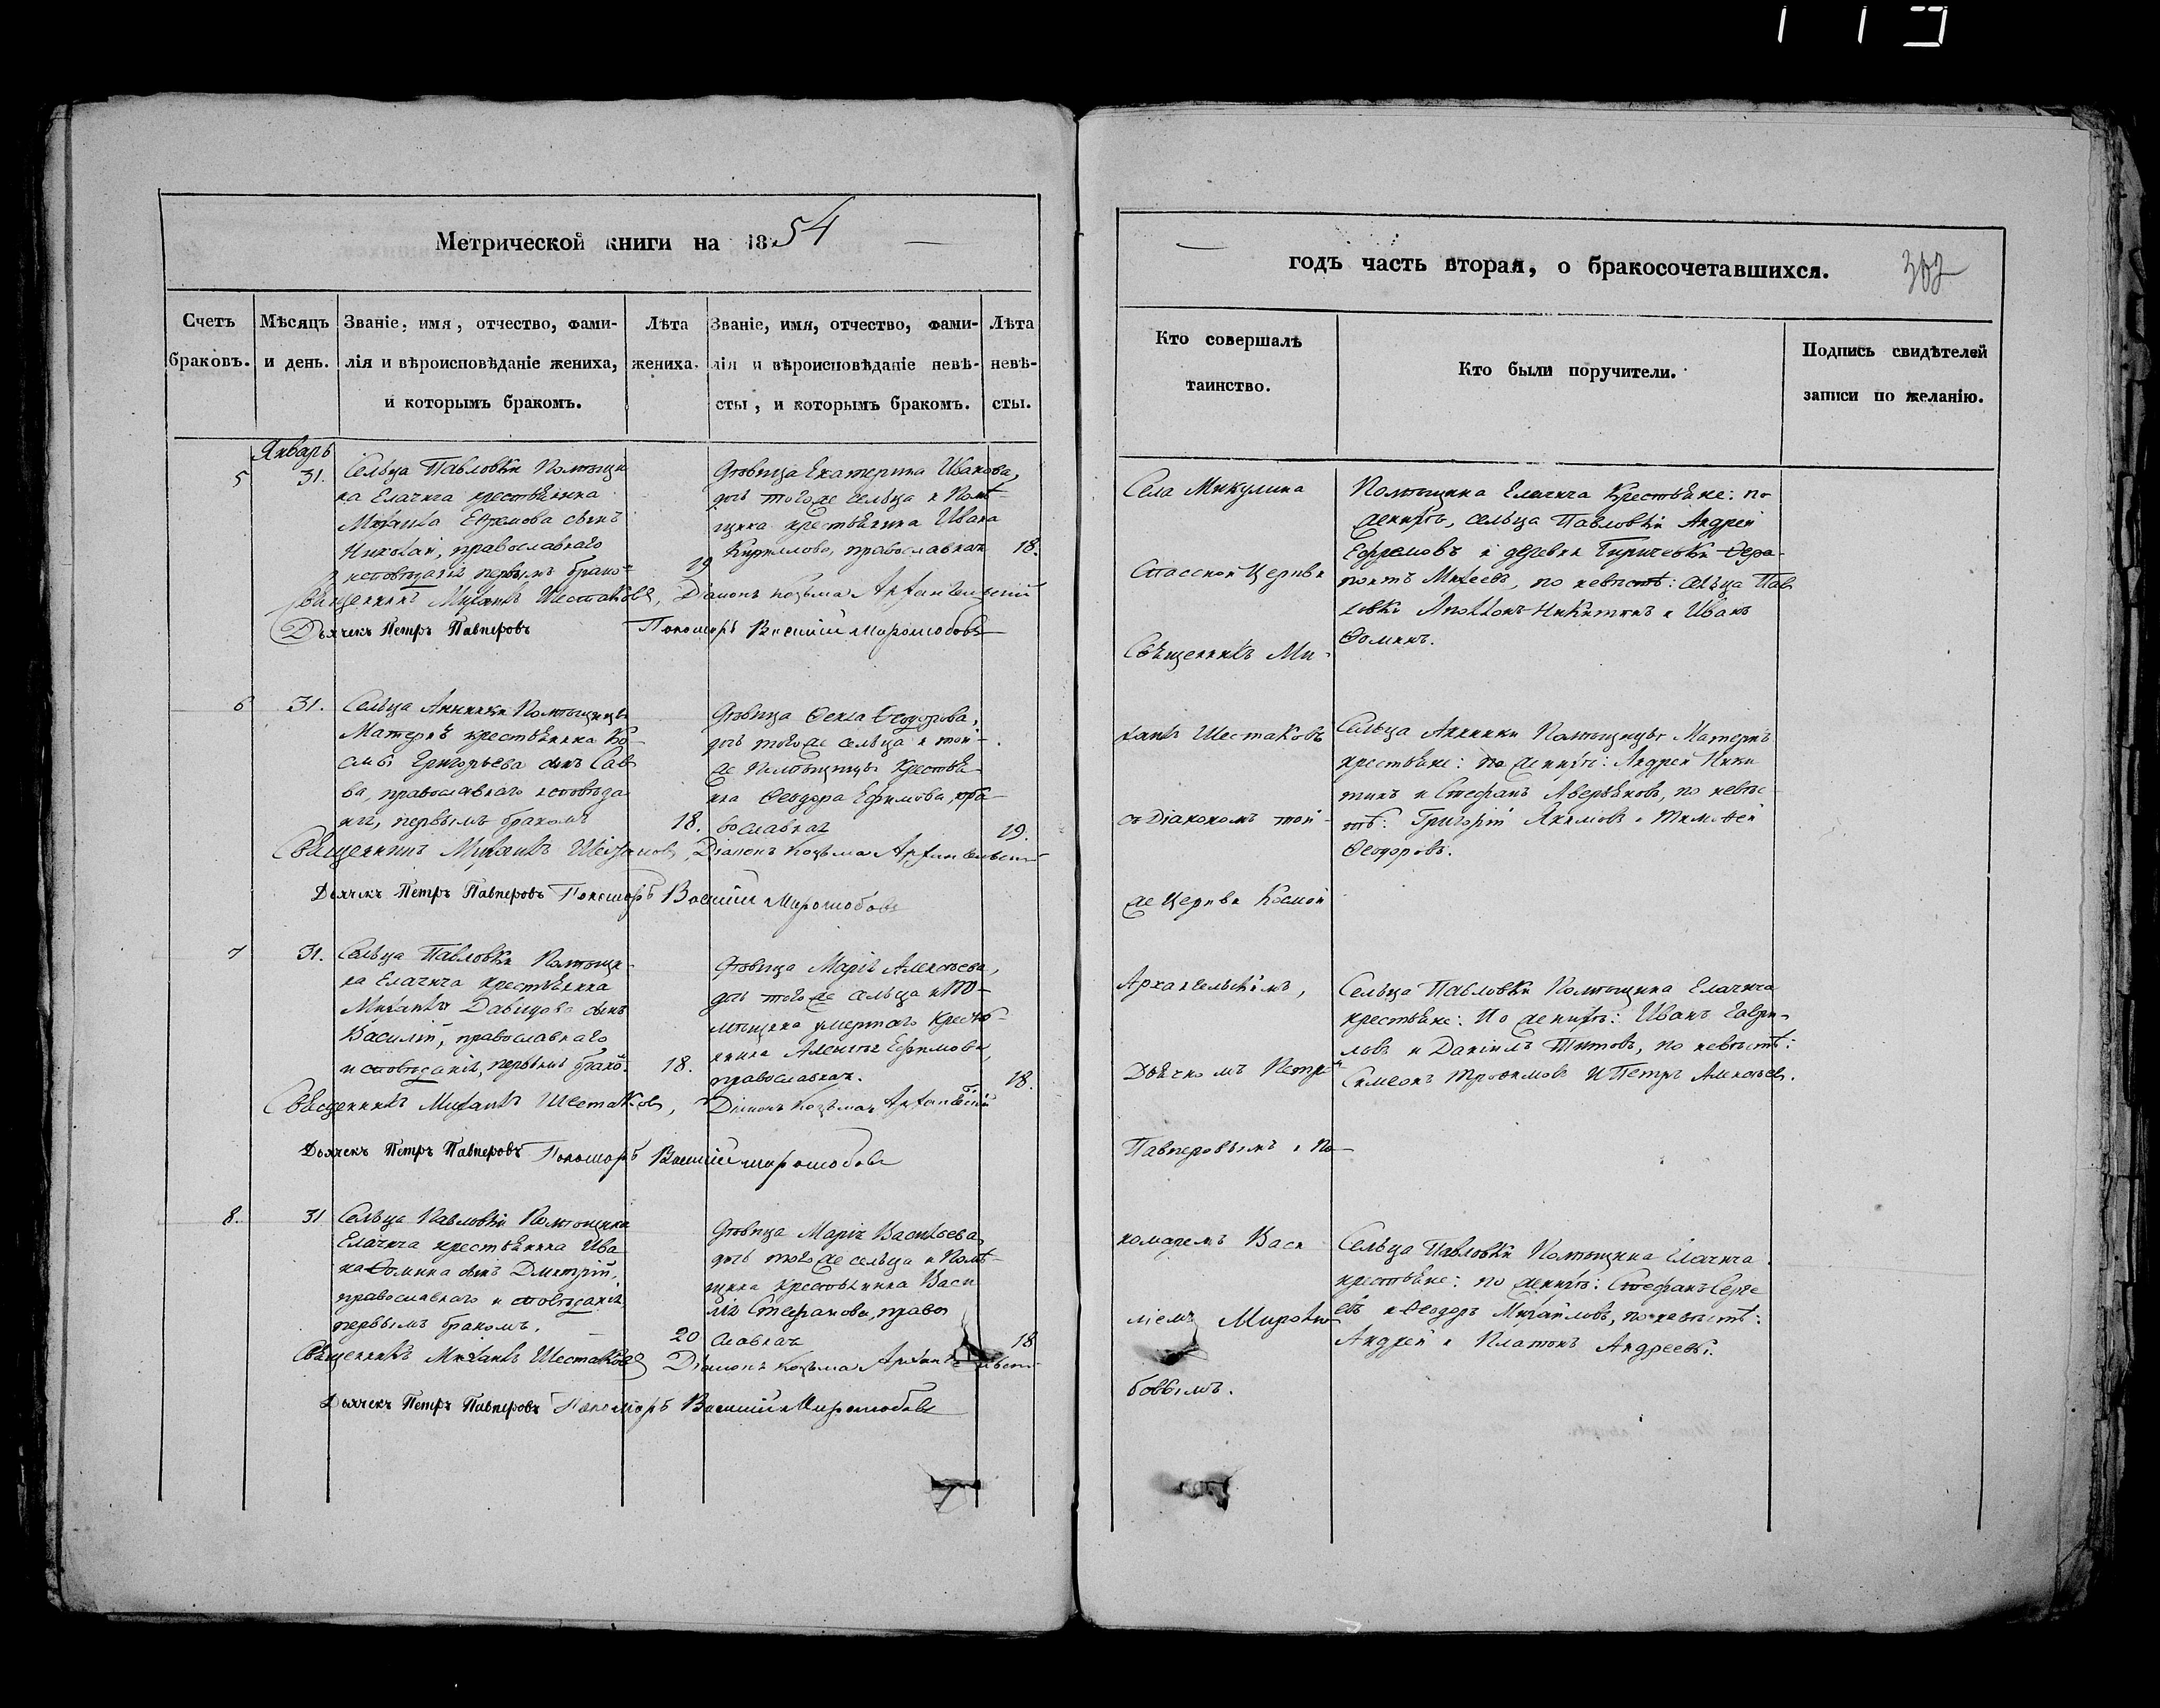 Метрической книги на 1854
Счетъ браковъ.
Мѣсяцъ и день.
Званіе, имя, отчество, фами-
лія и вѣроисповѣданіе жениха,
и которымъ бракомъ.
Лѣта жениха.
Званіе, имя, отчество, фами-
лія и вѣроисповѣданіе невѣ-
сты, и которымъ бракомъ.
Лѣта невѣ-
сты.
Январь
5
31.
Сельца Павловки Помѣщи
ка Елачича крестьянина
Михаила Ефремова сынъ
Николай, православнаго
исповѣданія первымъ брако-
19
Дѣвица Екатерина Иванова,
дочь того же сельца и Помѣ-
щика крестьянина Ивана
Кириллова, православная
18.
Священникъ Михаилъ Шестаковъ, Діаконъ Козьма Архангельскій
Дьячекъ Петръ Павперовъ Пономарь Василій Миролюбовъ
6
31.
Сельца Аннинки Помѣщицы
Матернъ крестьянина Ко-
смы Григорьева сынъ Сав
ва, православнаго исповѣда
нія, первымъ бракомъ
18.
Дѣвица Фекла Феодорова,
дочь того же сельца и той-
же Помѣщицы Крестья
нина Феодора Ефимова, пра
вославная
19.
Священникъ Михаилъ Шестаковъ, Діаконъ Козьма Архангельскій
Дьячекъ Петръ Павперовъ Пономарь Василій Миролюбовъ
7
31.
Сельца Павловки Помѣщи-
ка Елачича крестьянина
Михаила Давидова сынъ
Василій, православнаго
исповѣданія, первымъ брако.
18.
Дѣвица Марія Алексѣева,
дочь того же сельца и По-
мѣщика умершаго Крестья-
нина Алексѣя Ефимова,
православная.
18.
Священникъ Михаилъ Шестаковъ, Діаконъ Козьма Архангельскій
Дьячекъ Петръ Павперовъ Пономарь Василій Миролюбовъ
8.
31
Сельца Павловки Помѣщика
Елачича крестьянина Ива
на Фомина сынъ Дмитрій,
православнаго исповѣданія
первымъ бракомъ.
20
Дѣвица Марія Васильева,
дочь того же сельца и Помѣ-
щика Крестьянина Васи
лія Стефанова, право
славная
18
Священникъ Михаилъ Шестаковъ Діаконъ Козьма Архангельскій
Дьячекъ Петръ Павперовъ Пономарь Василій Миролюбовъ
годъ часть вторая, о бракосочетавшихся.
Кто совершалъ
таинство.
Кто были поручители.
Подпись свидѣтелей
записи по желанію.
Села Микулина
Спасской Церкви
Священникъ Ми-
хаилъ Шестаковъ
съ Діакономъ той-
же Церкви Космой
Архангельскимъ,
Дьячкомъ Петро
Павперовымъ и По-
номаремъ Васи
ліемъ Миролю-
бовымъ.
Помѣщика Елачича Крестьяне: по
женихѣ, сельца Павловки Андрей
Ефремовъ и деревни Ферa-
понтъ Михеевъ, по невѣстѣ: сельца Пав
ловки Аполлонъ Никитинъ и Иванъ
Фоминъ.
Сельца Аннинки Помѣщицы Матернъ
крестьяне: по женихѣ: Андрей Ники
тинъ и Стефанъ Аверьяновъ, по невѣс-
тѣ: Григорій Акимовъ и Тимофей
Феодоровъ.
Сельца Павловки Помѣщика Елачича
крестьяне: По женихѣ: Иванъ Гаври-
ловъ и Даніилъ Титовъ, по невѣстѣ:
Симеонъ Трофимовъ и Петръ Алексѣев.
Сельца Павловки Помѣщика Елачича
крестьяне: по женихѣ: Стефанъ Серге
евъ и Феодоръ Михайловъ, по невѣстѣ:
Андрей и Платонъ Андреевы.